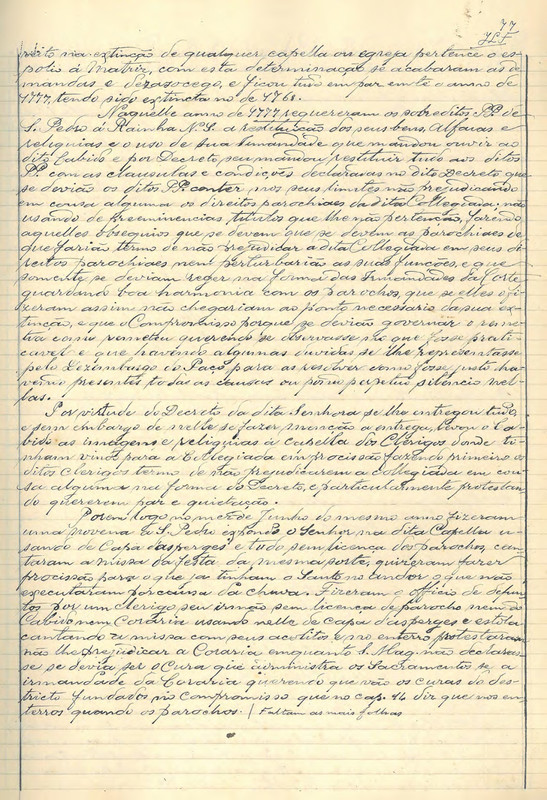 77
reito na extincção de qualquer capella ou egreja pertence o es-
polio á Matriz, com esta determinação se acabaram as de-
mandas e dezasocego, e ficou tudo em paz em té o anno de
1777, tendo sido extincta no de 1768.
Naquelle anno de 1777 requereram os sobreditos PP. de
S. Pedro á Rainha N. S. a restituição dos seus bens, Alfaias e
reliquias e o uso de sua Irmandade que mandou ouvir ao
dito Cabido e por Decreto seu mandou restituir tudo aos ditos
PP. com as clausulas e condições declaradas no dito Decreto que
se devião os ditos PP. conter nos seus limites não prejudicando
em cousa alguma os direitos parochiaes da dita Collegiada: não
usando de preeminencias, titulos que lhe não pertenção, fazendo
aquelles obsequios que se devem que se devem ás parochiaes de
que farião termo de não prejudicar a dita Collegiada em seus di-
reitos parochiaes nem perturbarião as suas funcções, e que
somente se deviam reger na forma das Irmandades da Corte
guardando boa harmonia com os parochos, que se elles o fi-
zeram assim não chegariam ao ponto necessario da sua ex-
tinção, e que o Compromisso porque se devião governar o
como remeteu querendo se observasse no que fosse prati-
cavel e que havendo algumas duvidas se lhe representasse
pelo Dezembargo do Paço para as resolver como fosse justo ha-
vendo presentes todas as causas ou pôr perpetuo silencio nel-
las.
Por virtude do Decreto da dita Senhora se lhe entregou tudo,
e sem embargo de nelle se fazer menção a entrega, levou o Ca-
bido as imagens e reliquias á capella dos Clerigos donde ti-
nham vindo para a Collegiada em procissão fazendo primeiro os
ditos clerigos termo de não prejudicarem a collegiada em cou-
sa alguma na forma do Decreto, e particularmente protestan-
do quererem paz e quietação.
Porem logo no mez de Junho do mesmo anno fizeram
uma novena a S. Pedro expondo o Senhor na dita Capella u-
sando de Capa d'asperges e tudo sem licença dos parochos, can-
taram a missa da festa da mesma sorte, quizeram fazer
procissão para o que ja tinham o Santo no andor o que não
executaram por causa da chuva. Fizeram o officio de defun-
tos por um clerigo seu irmão sem licença de parocho nem do
Cabido nem Coraria usando nelle de capa d'asperges e estola
cantando a missa com seus acolitos e no enterro protestaram
não lhe prejudicar a Coraria emquanto S. Mag. não declaras-
se se devia ser o Cura que administra os Sacramentos se a
irmandade da Coraria querendo que vão os curas do des-
tricto fundados no Compromisso que no cap. 14 diz que nos en-
terros quando os parochos. | Faltam as mais folhas